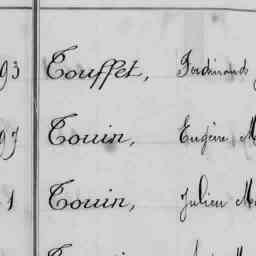 93 Touffet, Ferdinand
97 Touin, Eugène, M
1 Touin, Julien Ma